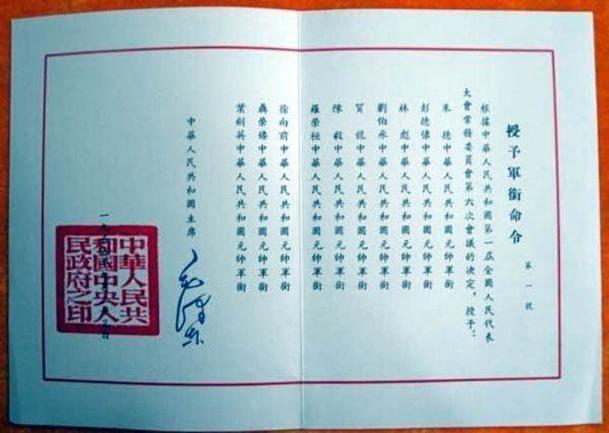 授予軍銜命令
第一號
根據中華人民共和國第一屆全國人民代表
大會常務委員會第六次會議的決定，授予：
朱德中華人民共和國元帥軍銜
彭德懷中華人民共和國元帥軍銜
林彪中華人民共和國元帥軍銜
劉伯承中華人民共和國元帥軍銜
賀龍中華人民共和國元帥軍銜
陳毅中華人民共和國元帥軍銜
羅榮桓中華人民共和國元帥軍銜
徐向前中華人民共和國元帥軍銜
聶榮臻中華人民共和國元帥軍銜
葉劍英中華人民共和國元帥軍銜
中華人民共和國主席
毛澤东
一九
中華人民共
和國中央人
民政府之印